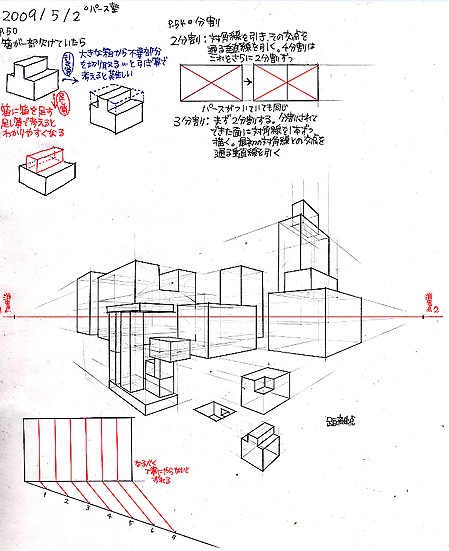 2009/5/2 °パース塾
P.50
箱が一部欠けていたら
引き算
大きな箱から不要部分
を切り取る…と引き算で
考えると難しい
足し算
箱に箱を足す
足し算で考えると
わかりやすくなる
P.54 °分割
2分割:対角線を引き、その交点を
通る垂直線を引く。4分割は
これをさらに2分割ずつ
パースがついていても同じ
3分割:まず2分割する。分割されて
できた面に対角線を1本ずつ
描く。最初の対角線との交点を
通る垂直線を引く
消失点1
消失点2
1
2
3
4
5
6
なるべく
丁寧にやらないと
ずれる